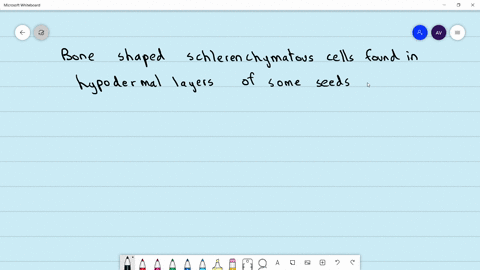 Microsoft Whiteboard
AV
Bone shaped schlerenchymatous cells found in
hypodermal layers of some seeds